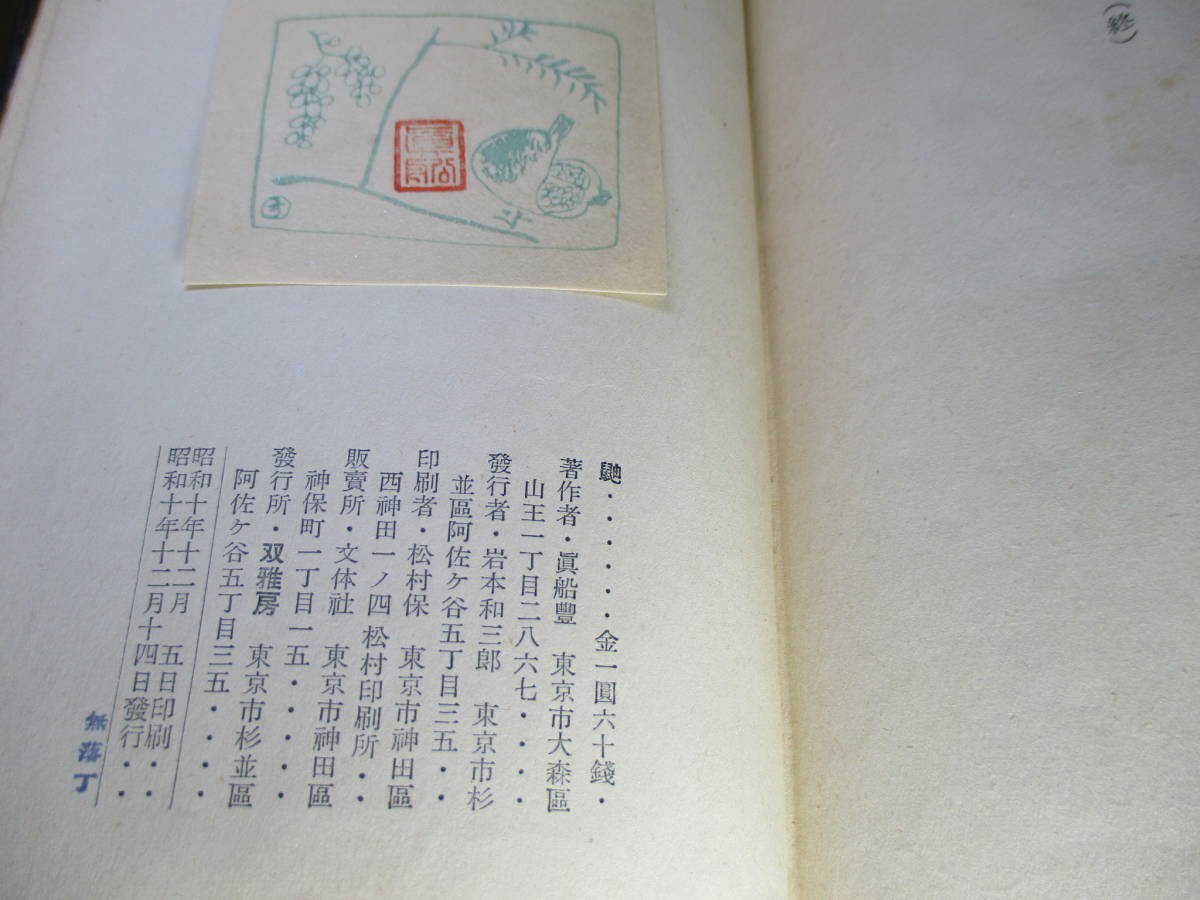 (終)
鼬・・・・・・金一圓六十錢・
著作者・眞船豐　東京市大森區
山王一丁目二八六七・・・・
發行者・岩本和三郎　東京市杉
並區阿佐ヶ谷五丁目三五・・
印刷者・松村保　東京市神田區
西神田一ノ四　松村印刷所・・
販賣所・文体社　東京市神田區
神保町一丁目一五・・・・・
發行所・双雅房　東京市杉並區
阿佐ヶ谷五丁目三五・・・・
昭和十年十二月　五日印刷・・
昭和十年十二月十四日發行・・
無落丁